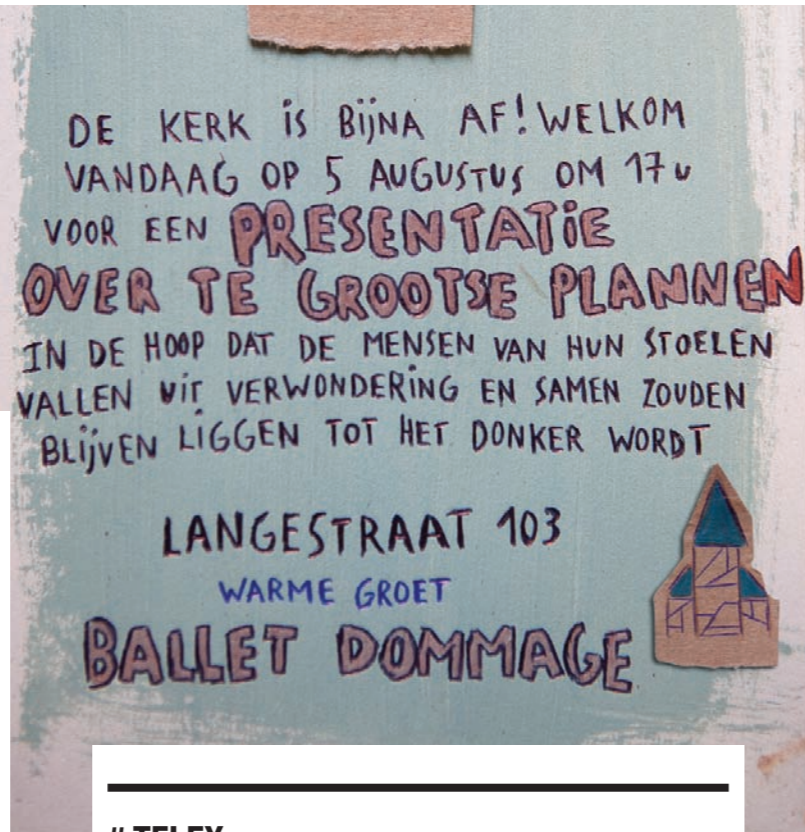 DE KERK iS BijNA AF! WELKOM
VANDAAG OP 5 AUGUSTUS OM 17u
VOOR EEN PRESENTATiE
OVER TE GROOTSE PLANNEN
IN DE HOOP DAT DE MENSEN VAN HUN STOELEN
VALLEN UiT VERWONDERiNG EN SAMEN ZOUDEN
BLijVEN LiGGEN TOT HET DONKER WORDT
LANGESTRAAT 103
WARME GROET
BALLET DOMMAGE
# TELEX